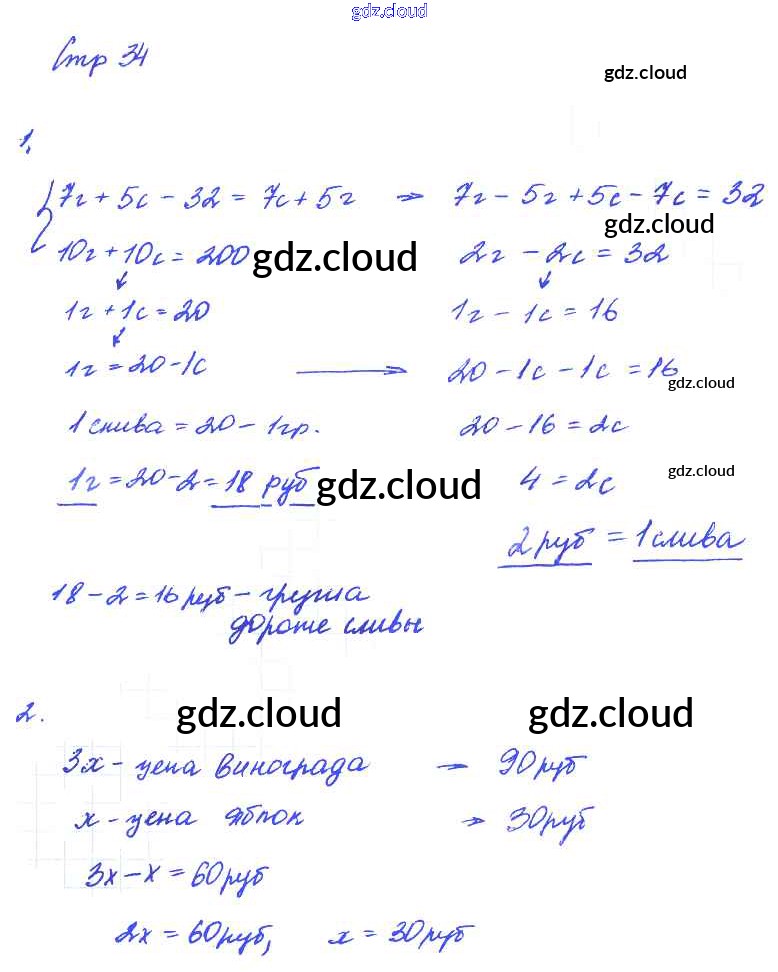 gdz.cloud
Стр 34
gdz.cloud
1.
7г + 5с − 32 = 7с + 5г → 7г − 5г + 5с − 7с = 32
gdz.cloud
10г + 10с = 200 gdz.cloud 2г − 2с = 32
1г + 1с = 20 1г − 1с = 16
1г = 20 − 1с → 20 − 1с − 1с = 16 gdz.cloud
1 слива = 20 − 1гр. 20 − 16 = 2с
1г = 20 − 2 = 18 руб gdz.cloud 4 = 2с gdz.cloud
2 руб = 1 слива
18 − 2 = 16 руб − груша
дороже сливы
2. gdz.cloud gdz.cloud
3х − цена винограда → 90 руб
х − цена яблок → 30 руб
3х − х = 60 руб
2х = 60 руб, х = 30 руб